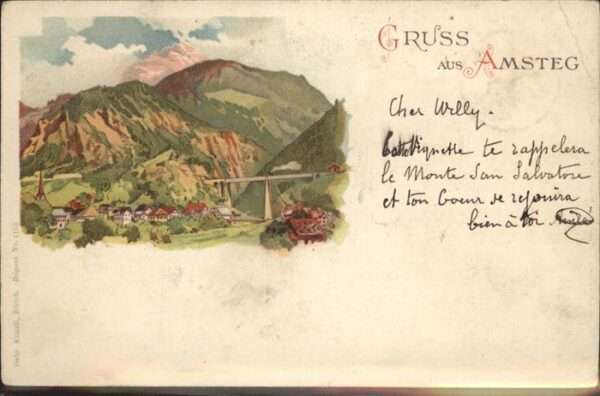 GRUSS
AUS AMSTEG
Cher Willy.
Cette Vignette te rappelera
le Monte San Salvatore
et ton Coeur de rejouira
bien à toi
Gebr. Künzli, Zürich. Dépose No.